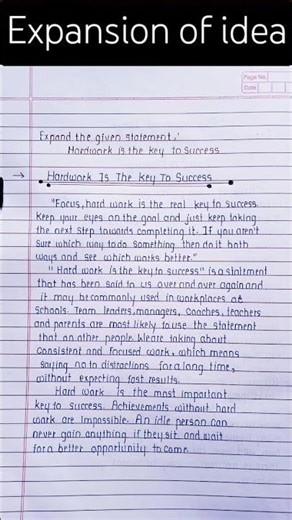 Expansion of idea
Page No.
Date
Expand the given statement.'
Hardwork is the key to success
→ Hardwork Is The Key To Success
"Focus, hard work is the real key to success.
Keep your eyes on the goal and just keep taking
the next step towards completing it. If you aren't
sure which way to do something then do it both
ways and see which works better."
"Hard work is the key to success" is a statment
that has been said to us over and over again and
it may be commonly used in workplaces at
schools. Team leaders, managers, coaches, teachers
and parents are most likely to use the statement
that on other people. We are taking about
consistent and focused work, which means
saying no to distractions for a long time,
without expecting fast results.
Hard work is the most important
key to success. Achievements without hard
work are impossible. An idle person can
never gain anything if they sit and wait
for a better opportunity to come.